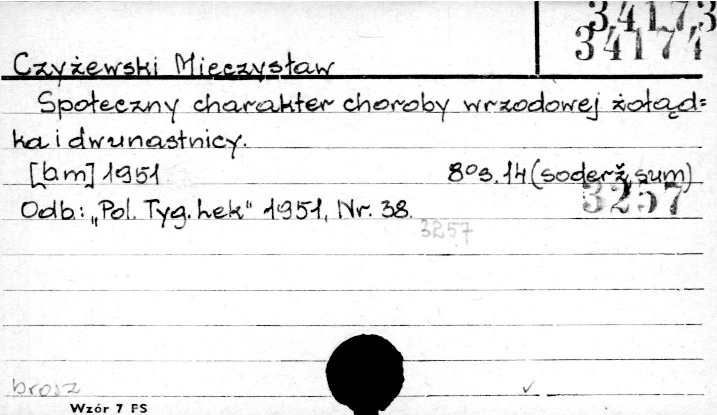 34173
34174
Czyżewski Mieczysław
Społeczny charakter choroby wrzodowej żołąd=
ka i dwunastnicy.
[bm] 1951 8° s. 14 (soderž, sum)
3257
Odb.: „Pol. Tyg. Lek" 1951, Nr. 38.
3257
brosz
Wzór 7 FS